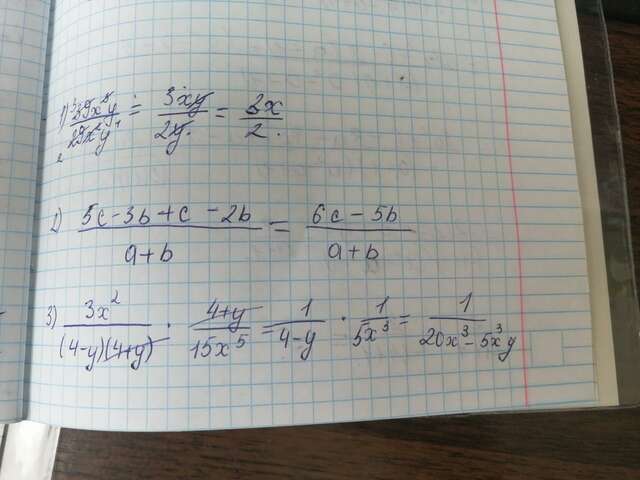 1) 39x³y / 26x²y = 3xy / 2y = 3x / 2.
2) 5c-3b+c-2b / a+b = 6c-5b / a+b
3) 3x² / (4-y)(4+y) · 4+y / 15x⁵ = 1 / 4-y · 1 / 5x³ = 1 / 20x³-5x³y